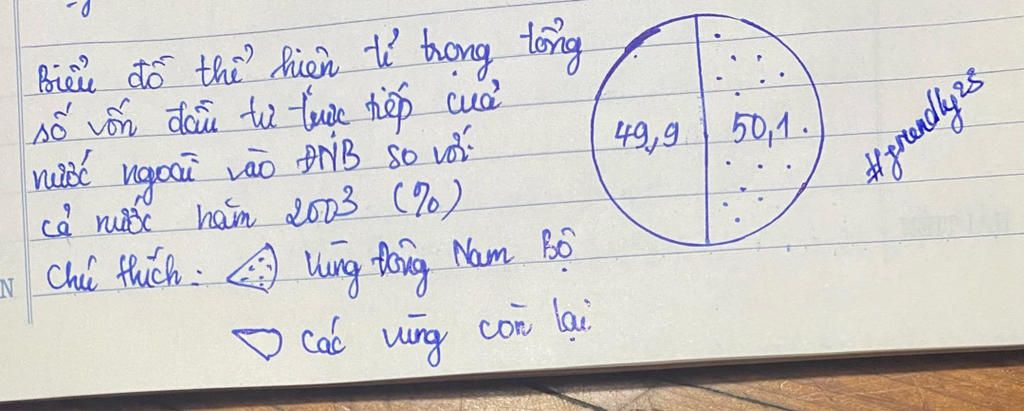 Biểu đồ thể hiện tỉ trọng tổng
số vốn đầu tư trực tiếp của
nước ngoài vào ĐNB so với
cả nước năm 2003 (%)
Chú thích: Vùng Đông Nam Bộ
các vùng còn lại
49,9 50,1
#friendly28
N